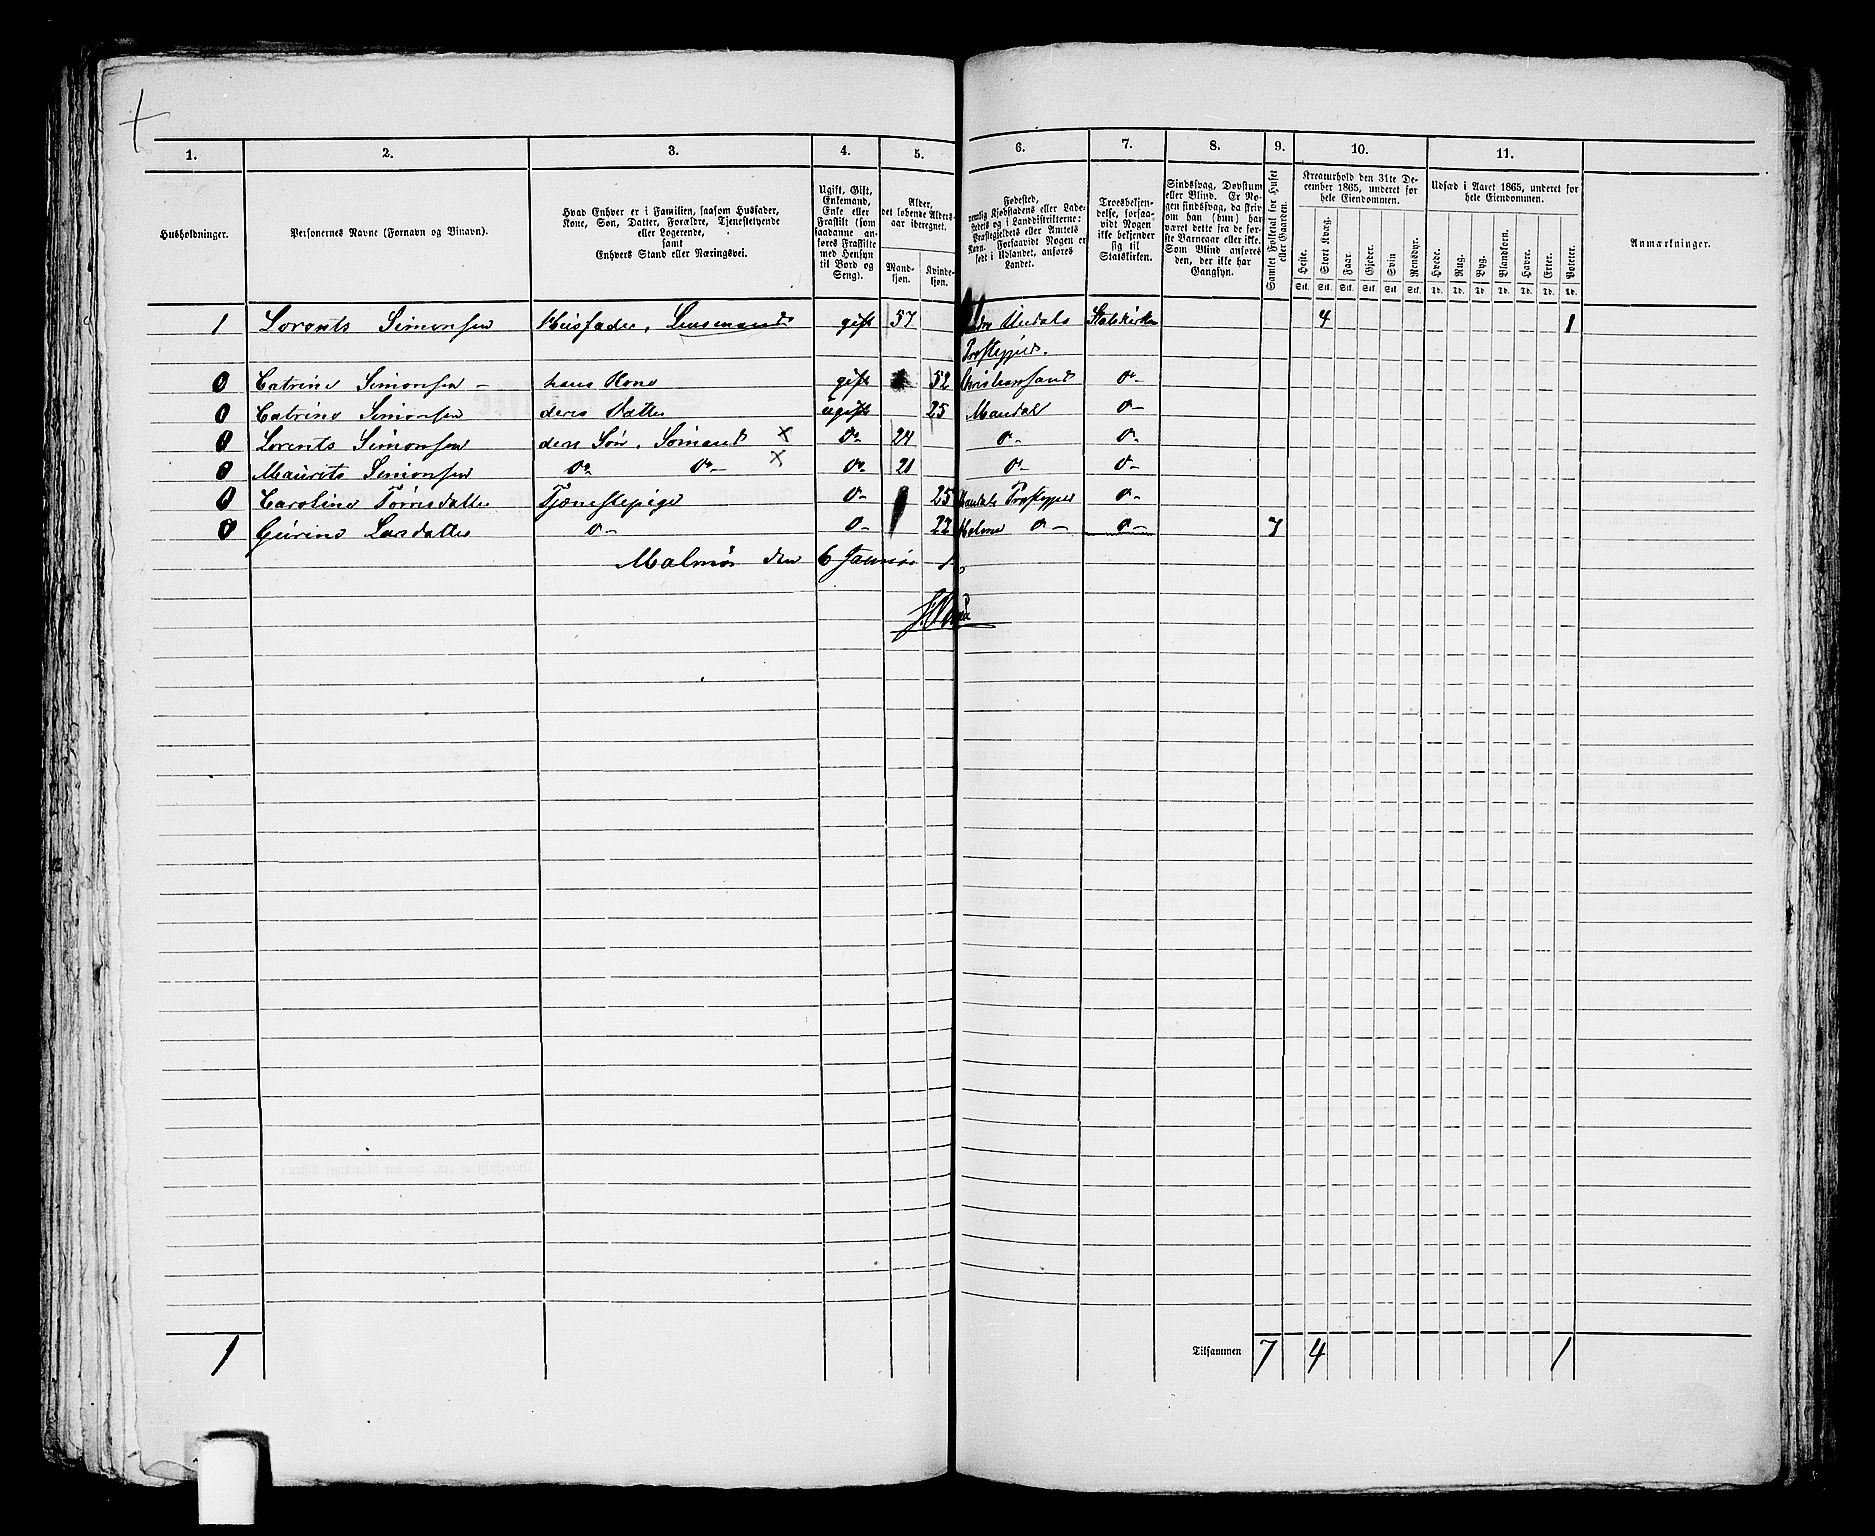 1. 2. 3. 4. 5. 6. 7. 8. 9. 10. 11.
Husholdninger.
Personernes Navne (Fornavn og Binavn).
Hvad Enhver er i Familien, saasom Husfader,
Kone, Søn, Datter, Forældre, Tjenestetyende
eller Logerende,
samt
Enhvers Stand eller Næringsvei.
Ugift, Gift,
Enkemand,
Enke eller
Fraskilt (som
saadanne an-
føres Fraskilte
med Hensyn
til Bord og
Seng).
Alder,
det løbende Alders-
aar iberegnet.
Mand-
kjøn.
Kvinde-
kjøn.
Fødested,
nemlig Kjøbstadens eller Lade-
stedets og i Landdistrikterne:
Præstegjeldets eller Amtets
Navn. Forsaavidt Nogen er
født i Udlandet, anføres
Landet.
Troesbekjen-
delse, forsaa-
vidt Nogen
ikke bekjender
sig til
Statskirken.
Sindssvag, Døvstum
eller Blind. Er No-
gen sindssvag, da skriv
om han (hun) har
været dette fra de før-
ste Barneaar eller ikke.
Som Blind anføres
den, der ikke har
Gangsyn.
Samlet Folketal for Huset
eller Gaarden.
Kreaturhold den 31te De-
cember 1865, underet for
hele Eiendommen.
Heste. Stort Kvæg. Faar. Gjeder. Svin Rensdyr.
Stk. Stk. Stk. Stk. Stk. Stk.
Udsæd i Aaret 1865, underet for
hele Eiendommen.
Hvede. Rug. Byg. Blandkorn. Havre. Erter. Poteter.
Td. Td. Td. Td. Td. Td. Td.
Anmærkninger.
1 Lorents Simonsen Husfader, Lensmand gift 57 Undals Statskirken 4 1
Præstegjeld.
0 Catrine Simonsen - hans Kone gift 52 Christiansand do-
0 Catrine Simonsen deres Datter ugift 25 Mandal do-
0 Lorents Simonsen deres Søn, Sømand x do- 24 do- do-
0 Maurits Simonsen do- do- x do- 21 do- do-
0 Caroline Tørresdatter Tjænestepige do- 25 Mandals Præstegjeld do-
0 Gurine Larsdatter do- do- 22 Holme do- do- 7
Malmø den 6 Januar
1 Tilsammen 7 4 1